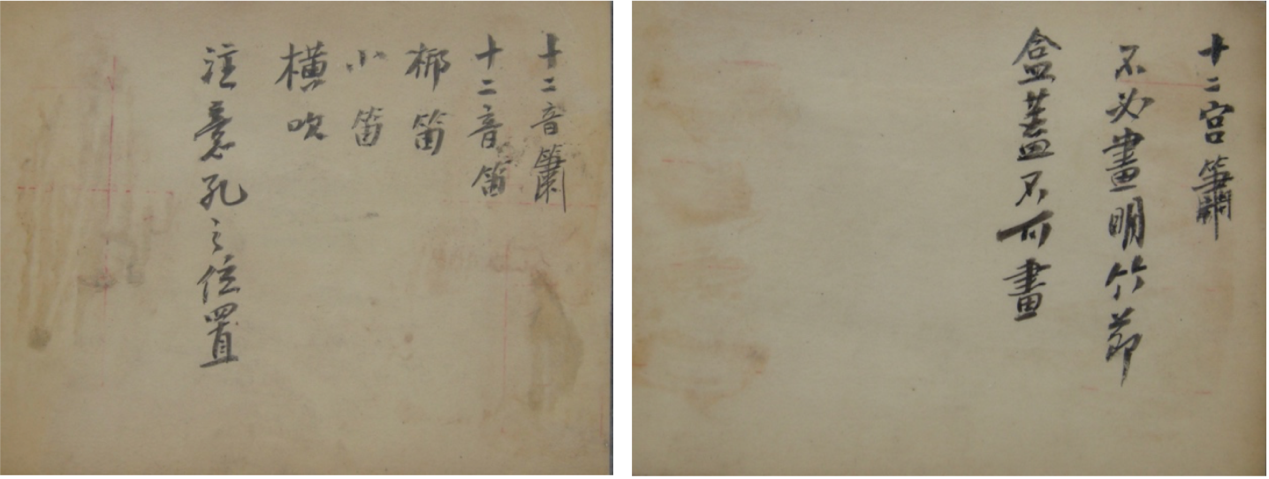 十二音簫
十二音笛
梆笛
小笛
橫吹
注意孔之位置
十二宮簫
不必畫明竹節
盒蓋不可畫